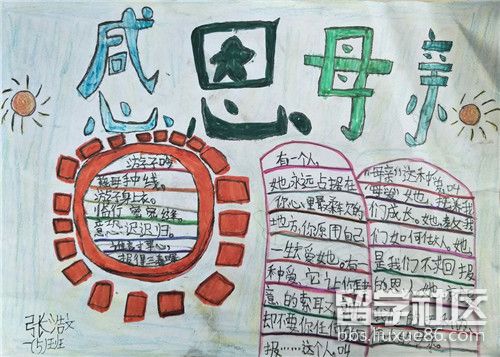 感恩母亲
游子吟
慈母手中线，
游子身上衣。
临行密密缝，
意恐迟迟归。
报得三春晖
有一个人，
她永远占据在
你心里最柔软的
地方，你愿用自己
一生去爱她。有
种爱，它让你
意的索取
却不要你任何
报……这个人，叫
“母亲”
们成长。她，教我
们如何做人。她，
是我们不求回报
的恩人
张浩文
一(5)班
留学社区
bbs.liuxue86.com